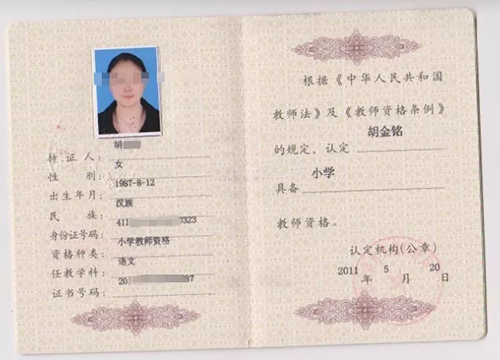 胡
持证人:
女
性 别:
1987-8-12
出生年月:
汉族
民 族:
411 0323
身份证号码:
小学教师资格
资格种类:
语文
任教学科:
20 87
证书号码:
根据《中华人民共和国
教师法》及《教师资格条例》
胡金铭
的规定,认定
小学
具备
教师资格。
认定机构(公章)
2011 5 20
年 月 日